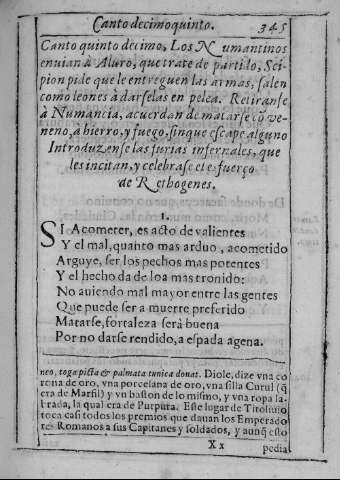 Canto decimoquinto. 345
Canto quinto decimo, Los Numantinos
enuian à Aluro, que trate de partido, Sci-
pion pide que le entreguen las armas, salen
como leones à darselas en pelea. Retiranse
à Numancia, acuerdan de matarse cõ ve-
neno, a hierro, y fuego, sin que escape alguno
Introduzense las furias infernales, que
les incitan, y celebrase el esfuerço
de Rethogenes.
1.
SI Acometer, es acto de valientes
Y el mal, quanto mas arduo, acometido
Arguye, ser los pechos mas potentes
Y el hecho da de loa mas tronido:
No auiendo mal mayor entre las gentes
Que puede ser a muerte preferido
Matarse, fortaleza serà buena
Por no darse rendido, a espada agena.
neo, toga picta & palmata tunica donat. Diole, dize vna co
rona de oro, vna porcelana de oro, vna silla Curul (q̃
era de Marfil) y vn baston de lo mismo, y vna ropa la-
brada, la qual era de Purpura. Este lugar de Titoliuio
toca casi todos los premios que dauan los Emperado
res Romanos a sus Capitanes y soldados, y aunq̃ esto
Xx pedia